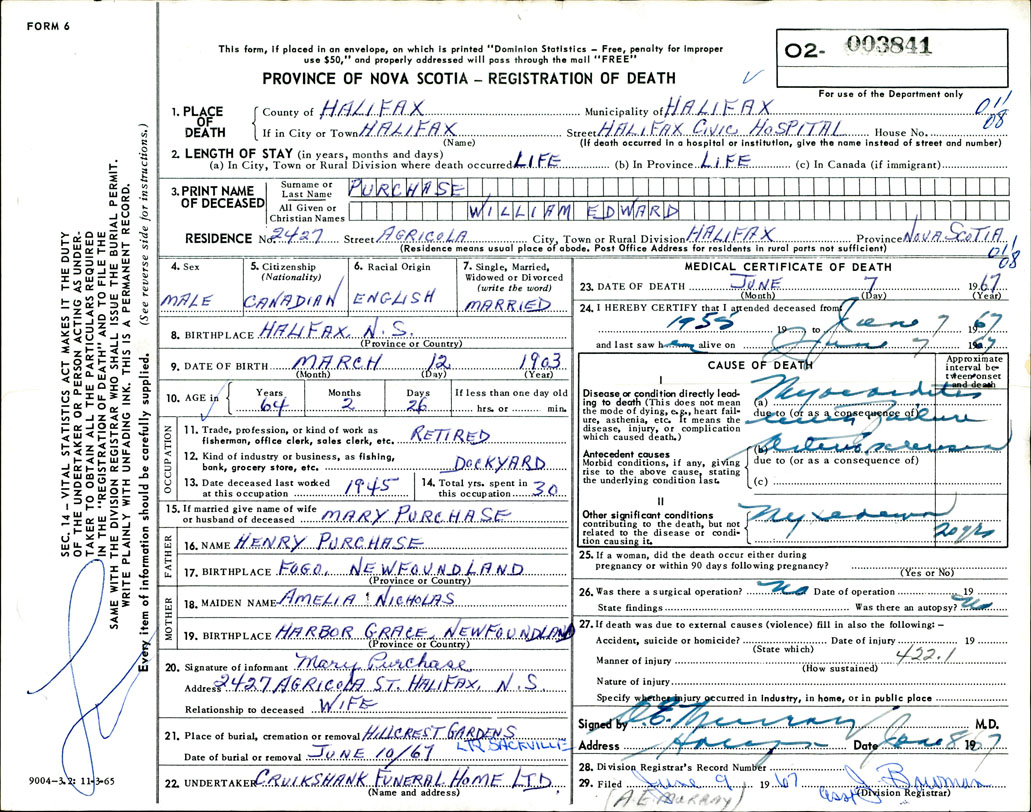 FORM 6
This form, if placed in an envelope, on which is printed "Dominion Statistics – Free, penalty for improper
use $50," and properly addressed will pass through the mail "FREE"
PROVINCE OF NOVA SCOTIA – REGISTRATION OF DEATH
O2- 003841
For use of the Department only
011
08
1. PLACE OF DEATH
County of HALIFAX Municipality of HALIFAX
If in City or Town HALIFAX Street HALIFAX CIVIC HOSPITAL House No.
(Name) (If death occurred in a hospital or institution, give the name instead of street and number)
2. LENGTH OF STAY (in years, months and days)
(a) In City, Town or Rural Division where death occurred LIFE (b) In Province LIFE (c) In Canada (if immigrant)
3. PRINT NAME OF DECEASED
Surname or Last Name PURCHASE
All Given or Christian Names WILLIAM EDWARD
RESIDENCE No. 2427 Street AGRICOLA City, Town or Rural Division HALIFAX Province NOVA SCOTIA
(Residence means usual place of abode. Post Office Address for residents in rural parts not sufficient)
011
08
4. Sex
MALE
5. Citizenship
(Nationality)
CANADIAN
6. Racial Origin
ENGLISH
7. Single, Married,
Widowed or Divorced
(write the word)
MARRIED
8. BIRTHPLACE HALIFAX, N.S.
(Province or Country)
9. DATE OF BIRTH MARCH 12 1903
(Month) (Day) (Year)
10. AGE in
Years Months Days If less than one day old
64 2 26 hrs. or min.
OCCUPATION
11. Trade, profession, or kind of work as
fisherman, office clerk, sales clerk, etc. RETIRED
12. Kind of industry or business, as fishing,
bank, grocery store, etc. DOCKYARD
13. Date deceased last worked
at this occupation 1945
14. Total yrs. spent in
this occupation 30
15. If married give name of wife
or husband of deceased MARY PURCHASE
FATHER
16. NAME HENRY PURCHASE
17. BIRTHPLACE FOGO, NEWFOUNDLAND
(Province or Country)
MOTHER
18. MAIDEN NAME AMELIA NICHOLAS
19. BIRTHPLACE HARBOR GRACE, NEWFOUNDLAND
(Province or Country)
20. Signature of informant Mary Purchase
Address 2427 AGRICOLA ST. HALIFAX, N.S.
Relationship to deceased WIFE
21. Place of burial, cremation or removal HILLCREST GARDENS
LR. SACKVILLE
Date of burial or removal JUNE 10/67
22. UNDERTAKER CRUIKSHANK FUNERAL HOME LTD.
(Name and address)
MEDICAL CERTIFICATE OF DEATH
23. DATE OF DEATH JUNE 7 1967
(Month) (Day) (Year)
24. I HEREBY CERTIFY that I attended deceased from
1955 19 to June 7 1967
and last saw him alive on June 7 1967
CAUSE OF DEATH
Approximate
interval be-
tween onset
and death
I
Disease or condition directly lead-
ing to death (This does not mean
the mode of dying, e.g., heart fail-
ure, asthenia, etc. It means the
disease, injury, or complication
which caused death.)
(a) Myocarditis
due to (or as a consequence of)
Failure
Antecedent causes
Morbid conditions, if any, giving
rise to the above cause, stating
the underlying condition last.
(b)
due to (or as a consequence of)
(c)
II
Other significant conditions
contributing to the death, but not
related to the disease or condi-
tion causing it.
Myxedema
20 yrs
25. If a woman, did the death occur either during
pregnancy or within 90 days following pregnancy?
(Yes or No)
26. Was there a surgical operation? No Date of operation 19
State findings Was there an autopsy? No
27. If death was due to external causes (violence) fill in also the following: –
Accident, suicide or homicide? Date of injury 19
(State which)
Manner of injury 422.1
(How sustained)
Nature of injury
Specify whether injury occurred in industry, in home, or in public place
Signed by E. Murray M.D.
Address Date June 8 1967
28. Division Registrar's Record Number
29. Filed June 9 1967 Bowman
(A.E. MURRAY) Asst (Division Registrar)
SEC. 14 – VITAL STATISTICS ACT MAKES IT THE DUTY
OF THE UNDERTAKER OR PERSON ACTING AS UNDER-
TAKER TO OBTAIN ALL THE PARTICULARS REQUIRED
IN THE "REGISTRATION OF DEATH" AND TO FILE THE
SAME WITH THE DIVISION REGISTRAR WHO SHALL ISSUE THE BURIAL PERMIT.
WRITE PLAINLY WITH UNFADING INK. THIS IS A PERMANENT RECORD.
Every item of information should be carefully supplied. (See reverse side for instructions.)
9004-3.2: 11-3-65